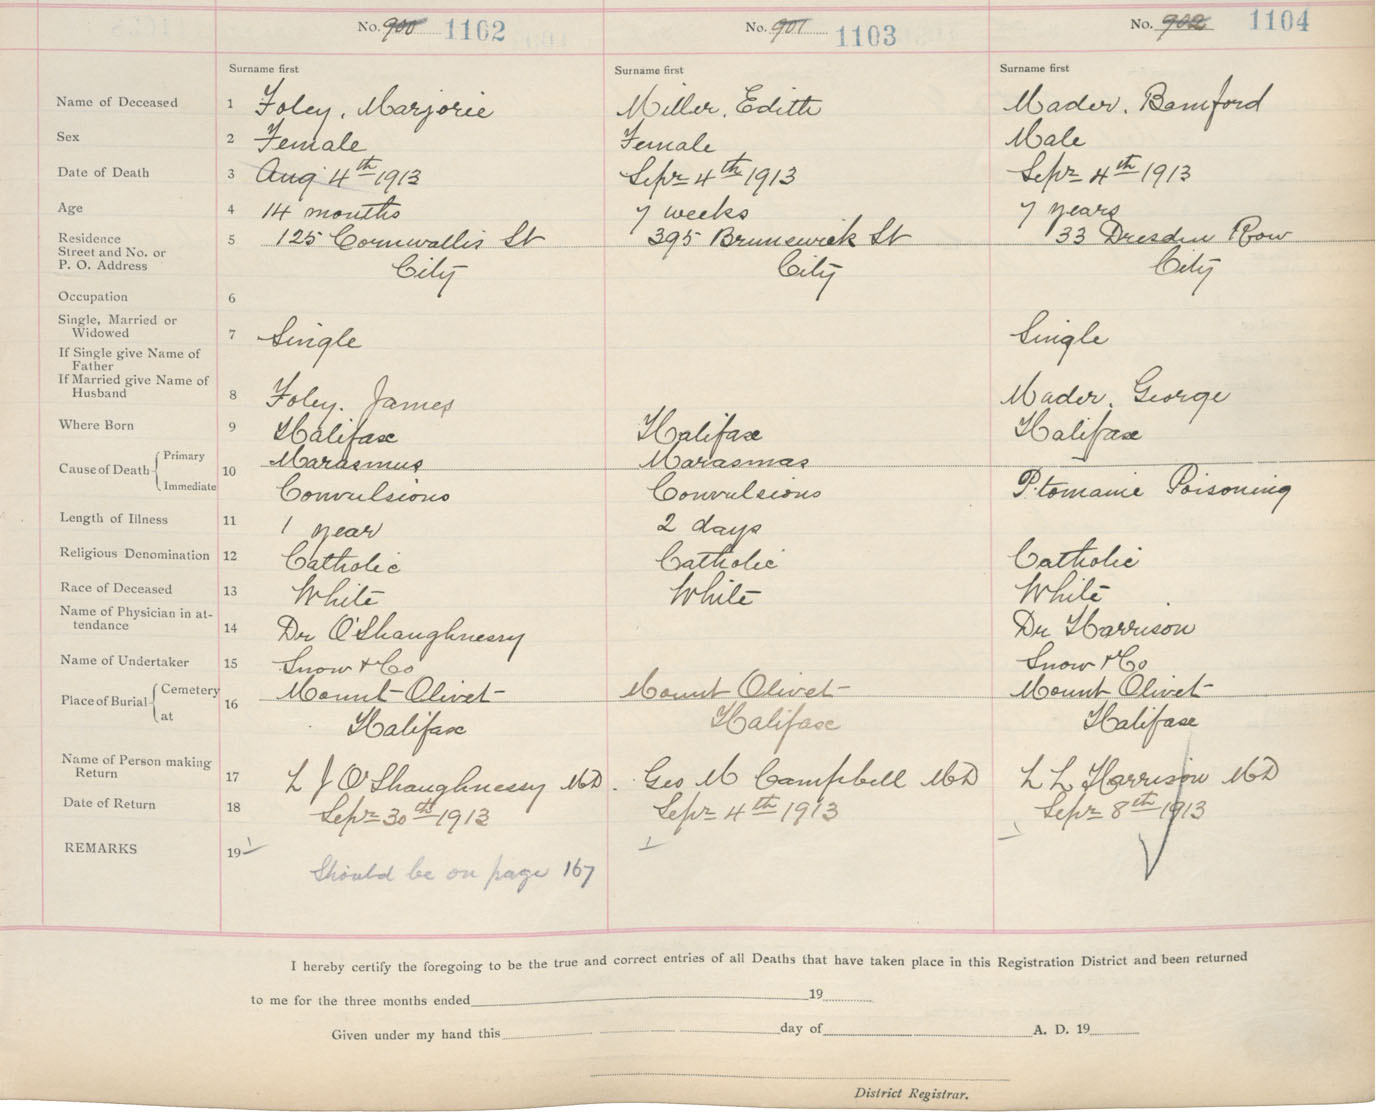 No. 900 1102 No. 901 1103 No. 902 1104
Surname first Surname first Surname first
Name of Deceased 1 Foley, Marjorie Miller, Edith Mader, Bamford
Sex 2 Female Female Male
Date of Death 3 Aug 4th 1913 Sepr 4th 1913 Sepr 4th 1913
Age 4 14 months 7 weeks 7 years
Residence 5 125 Cornwallis St 395 Brunswick St 33 Dresden Row
Street and No. or
P. O. Address City City City
Occupation 6
Single, Married or
Widowed 7 Single Single
If Single give Name of
Father
If Married give Name of
Husband 8 Foley. James Mader, George
Where Born 9 Halifax Halifax Halifax
Cause of Death Primary 10 Marasmus Marasmas
Immediate Convulsions Convulsions Ptomaine Poisoning
Length of Illness 11 1 year 2 days
Religious Denomination 12 Catholic Catholic Catholic
Race of Deceased 13 White White White
Name of Physician in at-
tendance 14 Dr O'Shaughnessy Dr Harrison
Name of Undertaker 15 Snow & Co Snow & Co
Place of Burial Cemetery 16 Mount Olivet Mount Olivet Mount Olivet
at Halifax Halifax Halifax
Name of Person making
Return 17 L J O'Shaughnessy MD. Geo M Campbell MD L L Harrison MD
Date of Return 18 Sepr 30th 1913 Sepr 4th 1913 Sepr 8th 1913
REMARKS 19
Should be on page 167
I hereby certify the foregoing to be the true and correct entries of all Deaths that have taken place in this Registration District and been returned
to me for the three months ended 19
Given under my hand this day of A. D. 19
District Registrar.